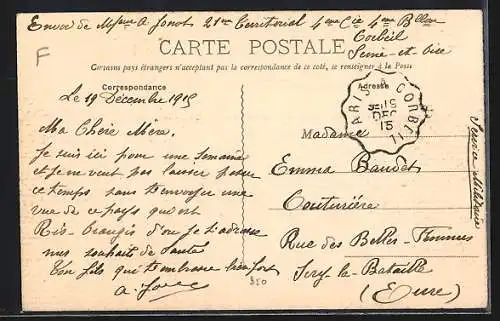 Envoi de A Jonot 21me Territorial 4me Cie 4me
Corbeil
Seine-et-Oise
F
CARTE POSTALE
Certains pays étrangers n'acceptant pas la correspondance de ce coté, se renseigner à la Poste
Correspondance
Le 19 Décembre 1915
Ma Chère Mère
Je suis ici pour une semaine
et je ne veut pas laisser passer
ce temps sans t'envoyer une
vue de ce pays qu'est
Ris-Orangis d'ou je t'adresse
mes souhait de Santé
Ton fils qui t'embrasse bien fort
A. Jonot
350
Adresse
PARIS A CORBEIL
19
DEC
15
Madame
Emma Baudet
Couturière
Rue des Belles-Femmes
Ivry-la-Bataille
(Eure)
Service Militaire